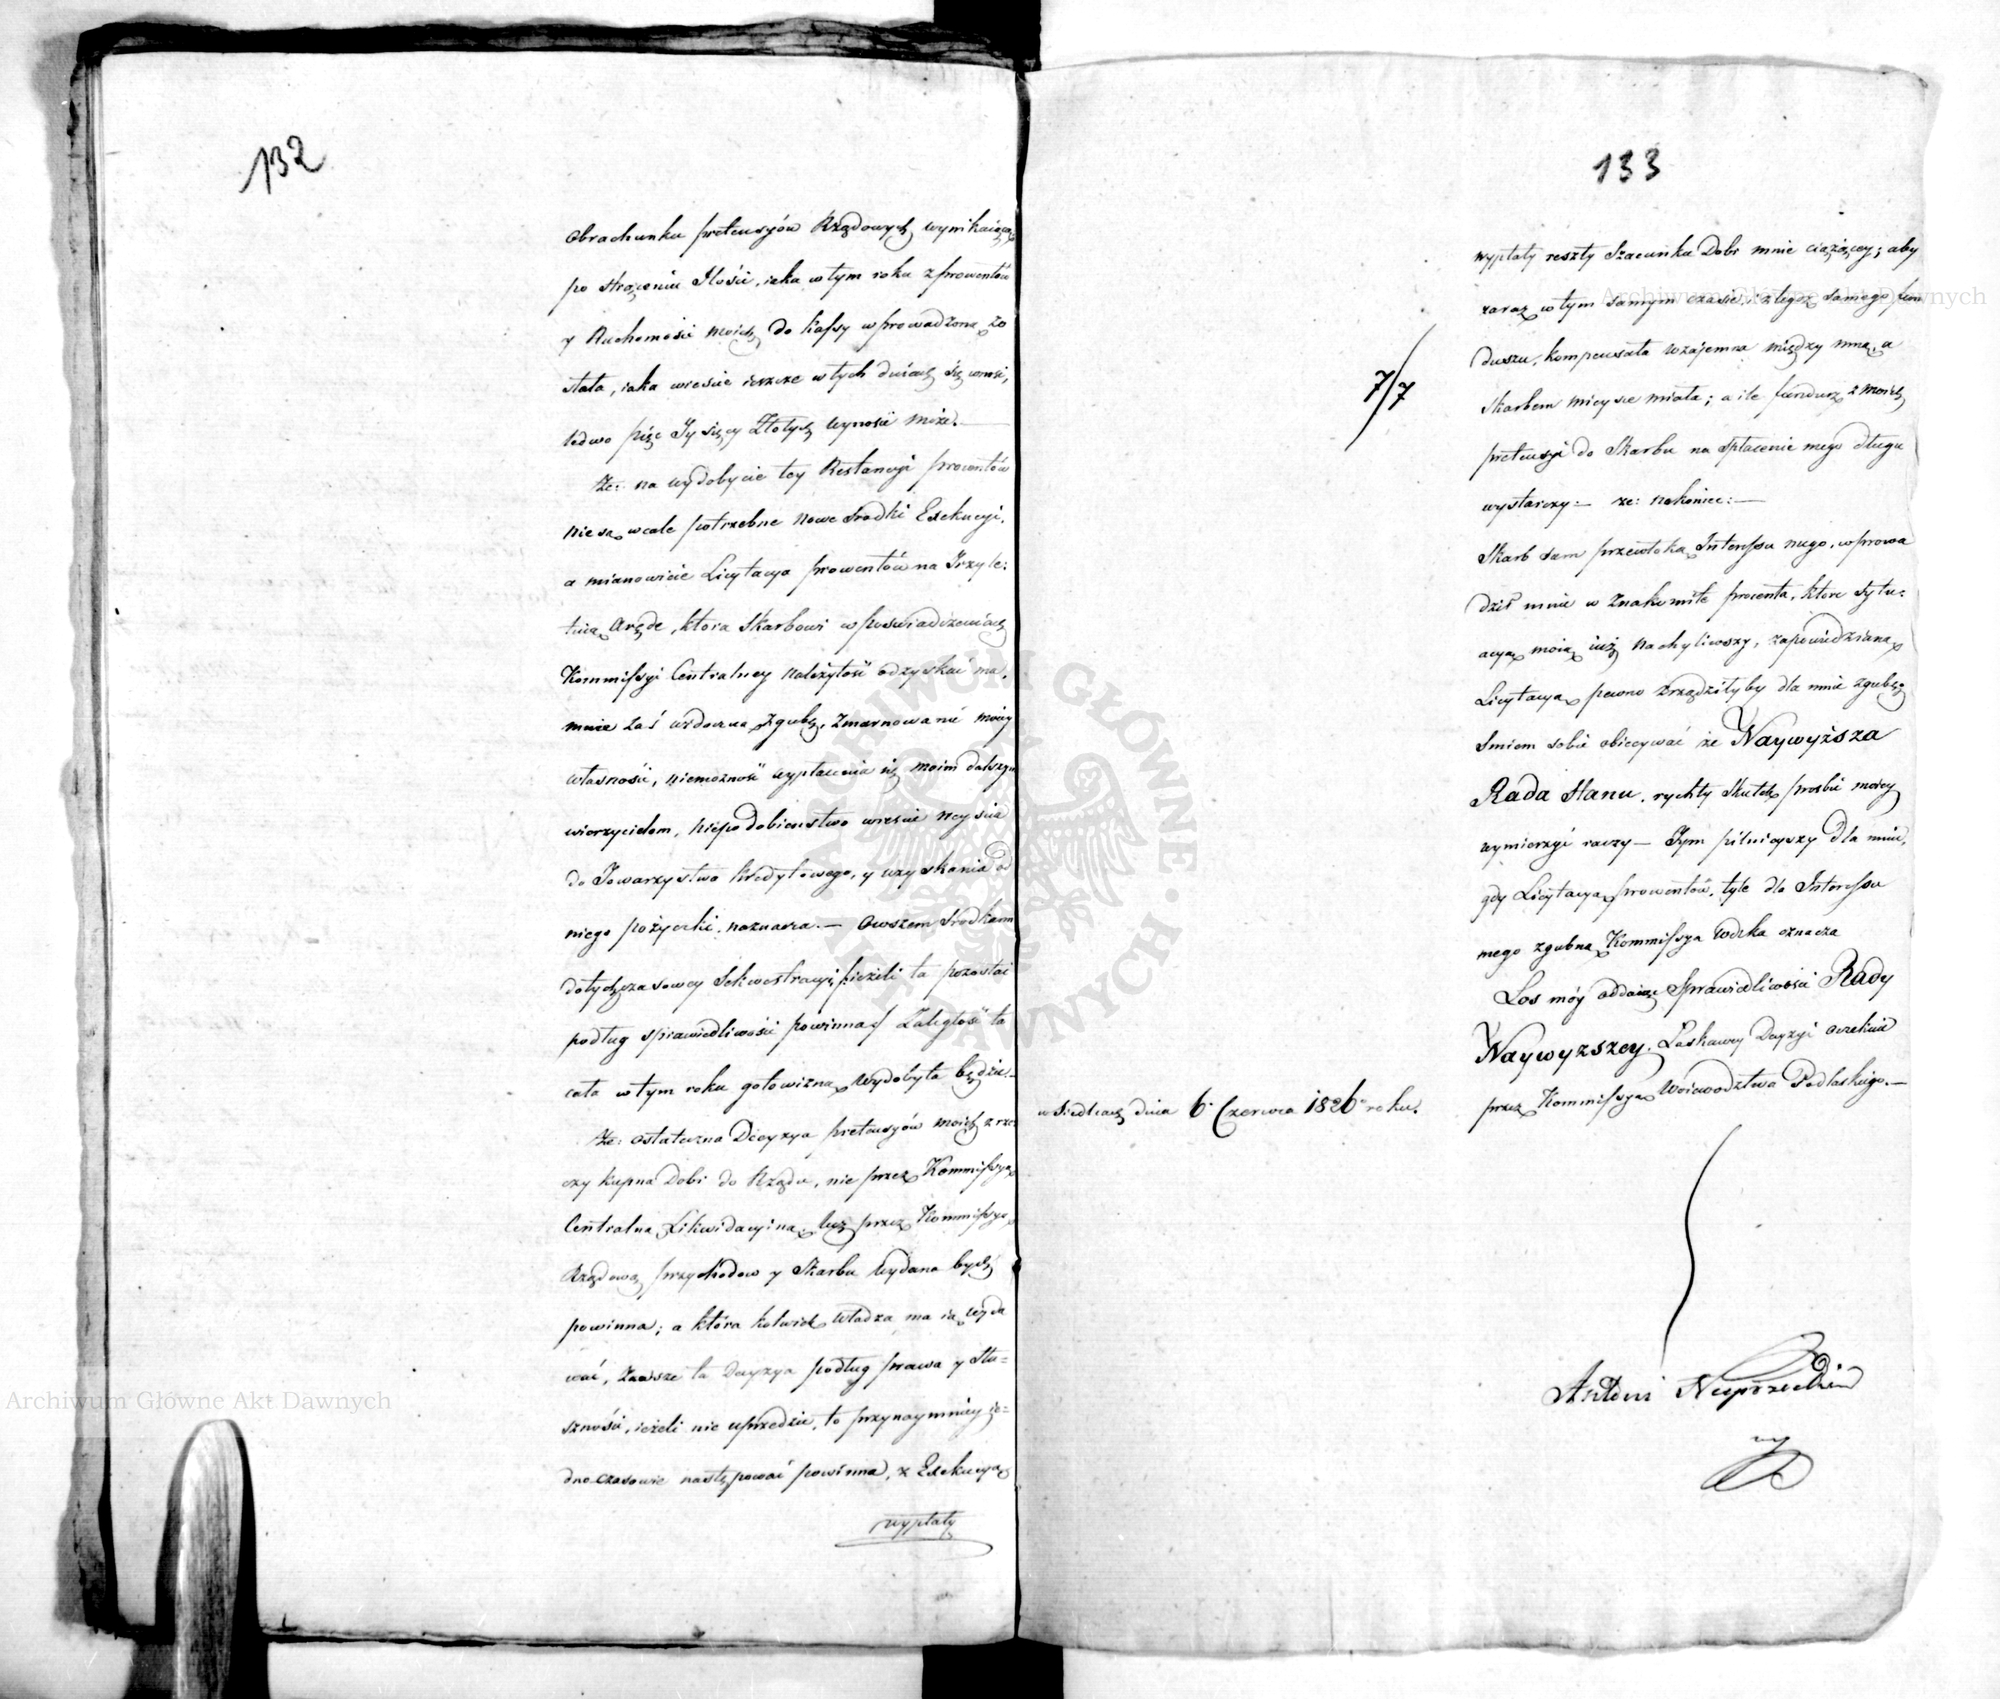 132
Obrachunku pretensyów Rządowych wynikaiącą
po strąceniu Ilości, iaka w tym roku z prowentów
y Ruchomości moich do Kassy wprowadzona zo
stała, iaka wreście ieszcze w tych dniach się wnosi,
ledwo pięć Tysięcy Złotych wynosić może.—
Że: na wydobycie tey Restancyi prowentów
nie są wcale potrzebne nowe srodki Exekucyi,
a mianowicie Licytacya prowentów na Trzyle:
tnią Arędę, która Skarbowi w poswiadczeniach
Kommissyi Centralney należytość odzyskać ma,
mnie zaś widoczną zgubę, zmarnowanie moiey
własności, niemożność wypłacenia się moim dalszym
wierzycielom, niepodobieństwo wreście weyscia
do Towarzystwa Kredytowego, y uzyskania od
niego pożyczki, naznacza.— Owszem srodkiem
dotychczasowey Sekwestracyi, |:ieżeli ta pozostać
podług sprawiedliwości powinna:| Zaległość ta
cała w tym roku gotowizną wydobyta będzie.—
Że: ostateczna Decyzya pretensyów moich z rze:
czy kupna Dobr do Rządu, nie przez Kommissyą
Centralną Likwidacyiną, lecz przez Kommissyą
Rządową przychodow y Skarbu wydana bydź
powinna; a która kolwiek Władza ma ią wyda
wać, zawsze ta Decyzya podług prawa y Słu=
szności, ieżeli nie uprzedzić, to przynaymniey ie=
dno-czasowie następować powinna, z Exekucyą
wypłaty
133
wypłaty reszty Szacunku Dobr mnie ciążącey; aby
zaraz w tym samym czasie, z tegoż samego fun
duszu, kompensata wzajemna między mną, a
Skarbem mieysce miała; a ile fundusz z moich
pretensyi do Skarbu na spłacenie mego długu
wystarczy:— że: nakoniec:—
Skarb sam przewłoką Interessu mego, wprowa
dził mnie w znakomite procenta, które sytu=
acyą moią iuż nachyliwszy, zapowiedzianą
Licytacyą pewno zrządziłyby dla mnie zgubę;
Smiem sobie obiecywać że Naywyższa
Rada Stanu, rychły Skutek prosbie moiey
wymierzyć raczy— Tym pilnieyszy dla mnie,
gdy Licytacyą prowentów, tyle dla Interessu
mego zgubną, Kommissya Wdzka oznacza
Los móy oddaiąc Sprawiedliwości Rady
Naywyzszey, Łaskawey Decyzyi oczekuie
przez Kommissyą Woiewodztwa Podlaskiego.—
7/7
w Siedlcach dnia 6. Czerwca 1826 roku.
Antoni
Archiwum Główne Akt Dawnych
Archiwum Główne Akt Dawnych
ARCHIWUM GŁÓWNE · AKT DAWNYCH ·